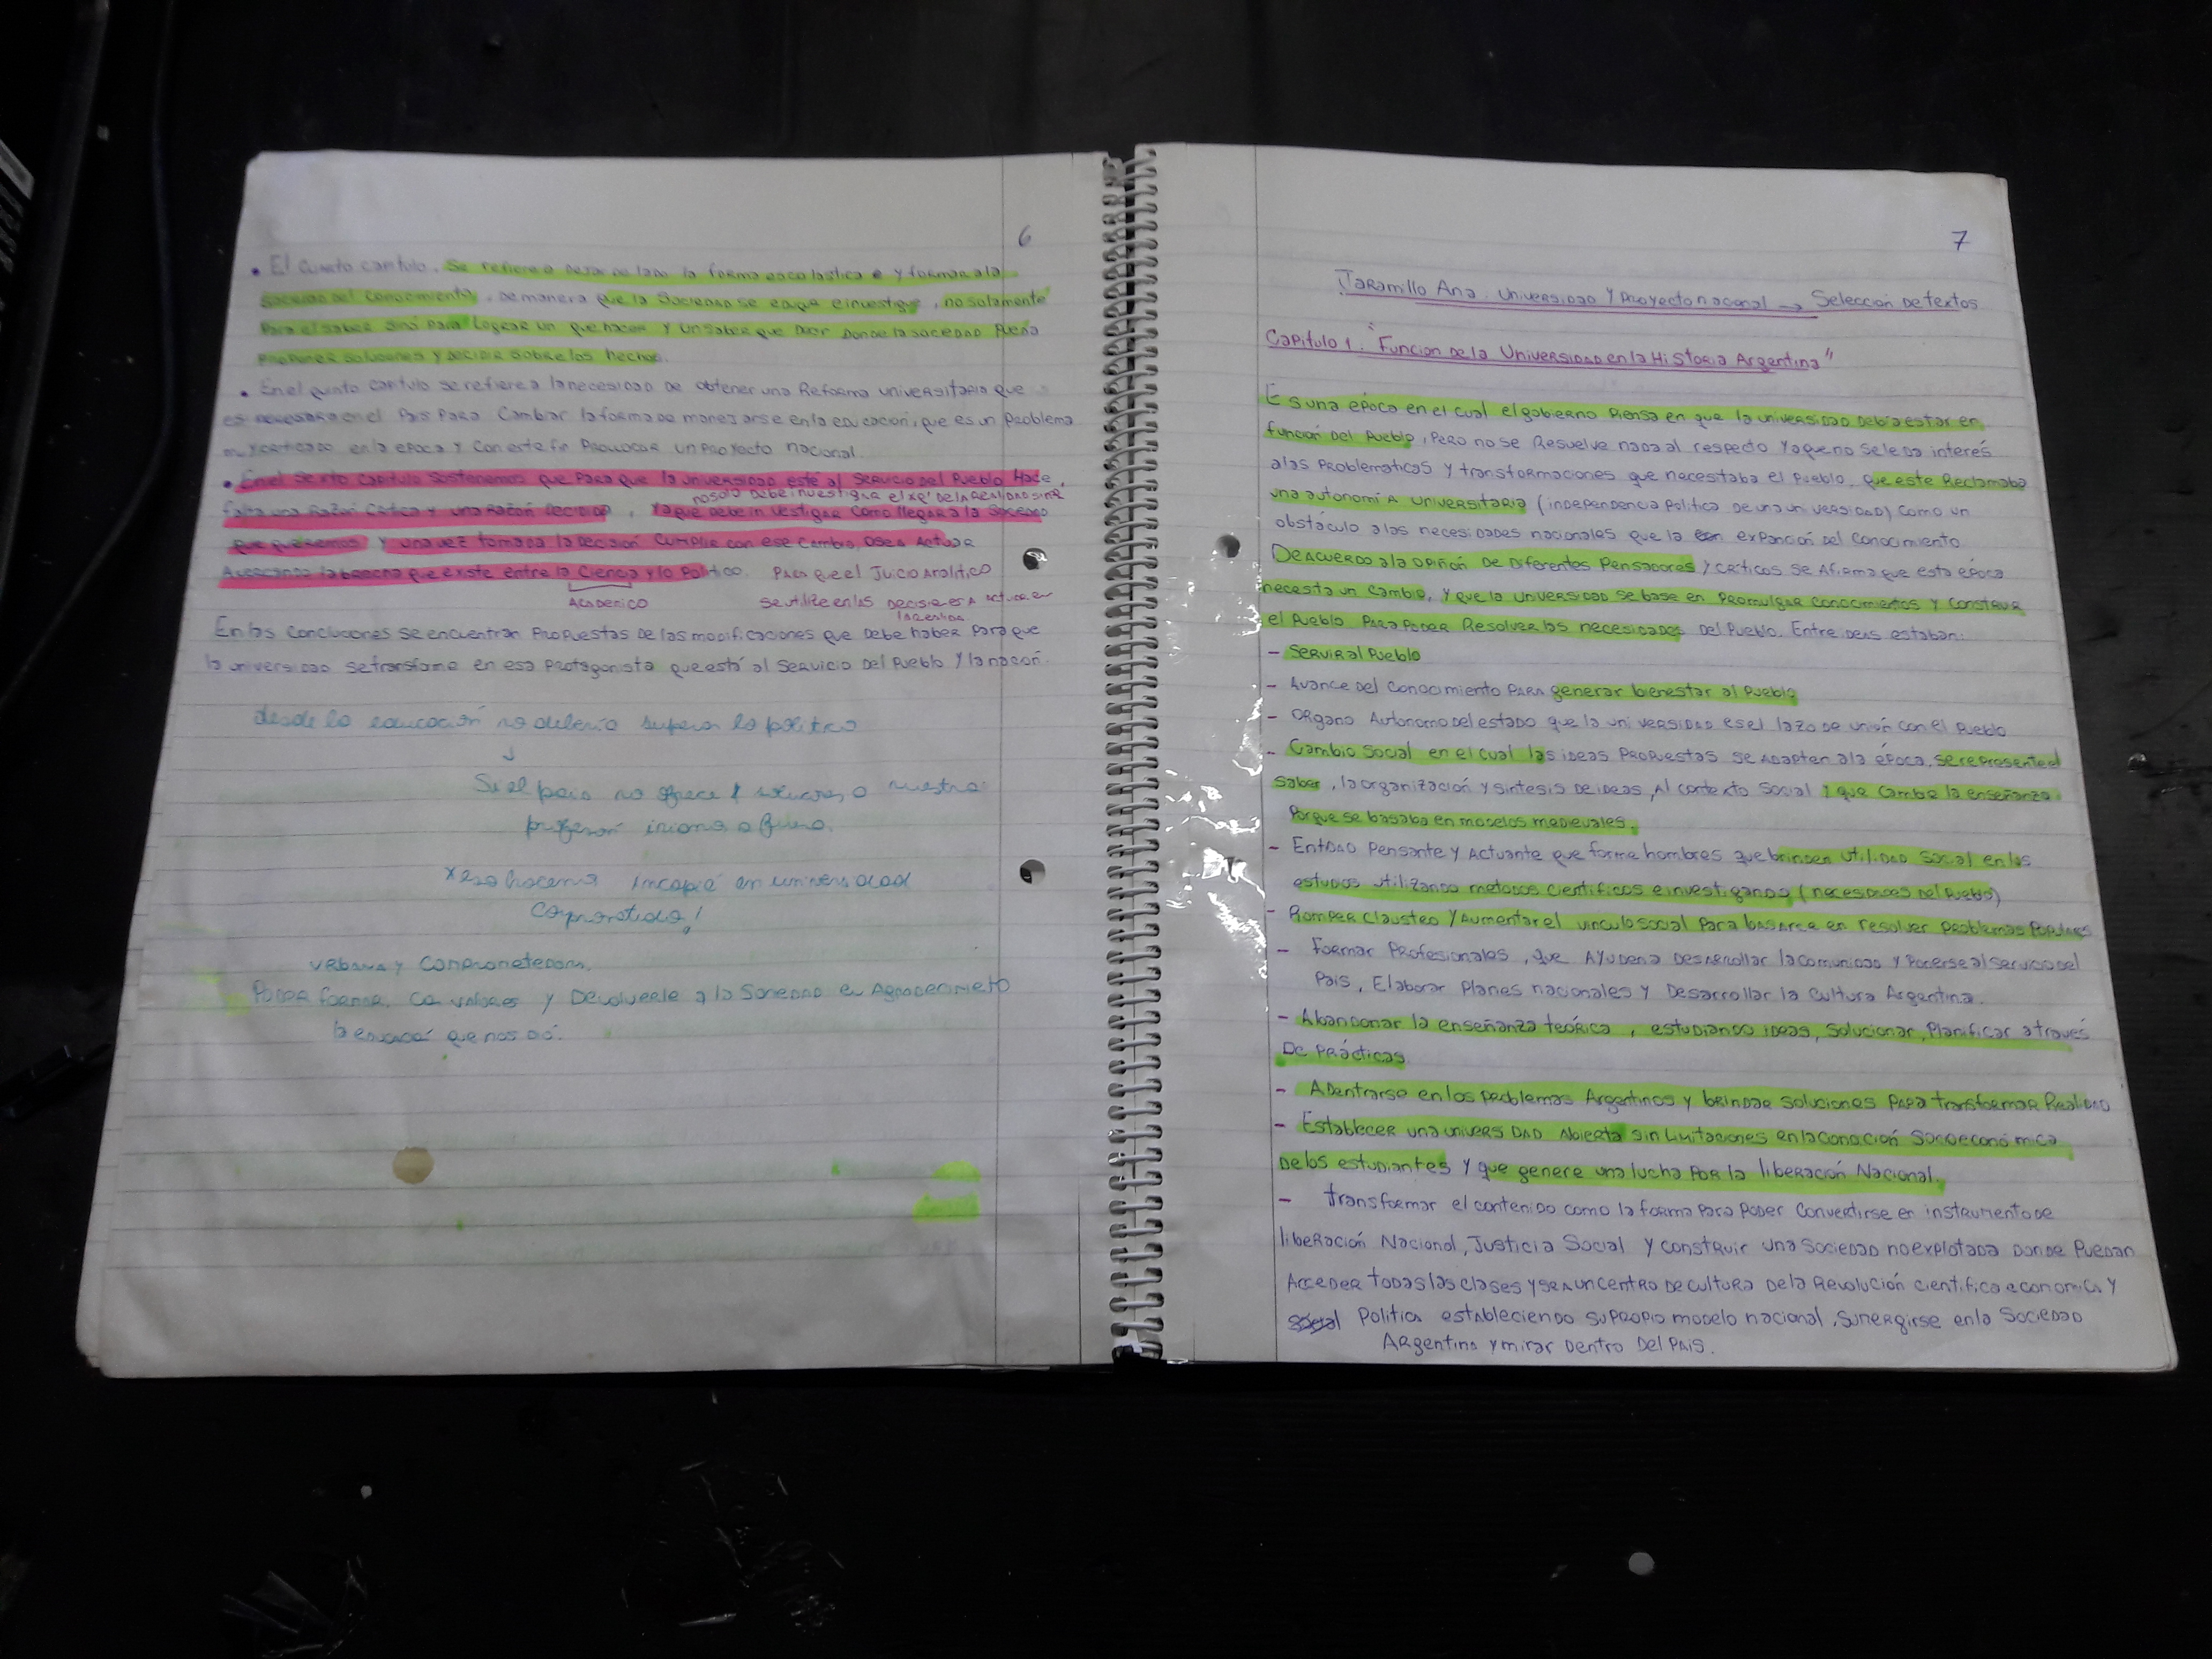 6
• El cuarto capitulo, se refiere a dejar de lado la forma escolastica e y formar a la
sociedad del conocimiento, de manera que la sociedad se eduque e investigue, no solamente
para el saber sino para lograr un que hacer y un saber que decir donde la sociedad pueda
proponer soluciones y decidir sobre los hechos.
• En el quinto capitulo se refiere a la necesidad de obtener una Reforma universitaria que
es necesaria en el Pais para cambiar la forma de manejarse en la educación, que es un problema
muy criticado en la epoca y con este fin provocar un proyecto nacional.
• En el sexto capitulo sostenemos que para que la universidad esté al servicio del Pueblo hace
no solo debe investigar el xq' de la realidad sino
falta una Razón Crítica y una razón decidida, ya que debe investigar como llegar a la sociedad
que queremos y una vez tomada la decisión cumplir con ese cambio, osea actuar
acercando la brecha que existe entre la Ciencia y lo Politico. Para que el Juicio Analítico
Academico se utilize en las decisiones a actuar en
la realidad
En las conclusiones se encuentran propuestas de las modificaciones que debe haber para que
la universidad se transforme en esa protagonista que está al servicio del Pueblo y la nación.
desde la educación no debería superar lo politico
↓
Si el pais no ofrece a nuestra
profesión irnos afuera.
x eso hacemos incapié en universidad
comprometida!
urbana y comprometedora.
Poder formar con valores y devolverle a la Sociedad en agradecimiento
la educación que nos dió.
7
Jaramillo Ana. Universidad y Proyecto nacional → Selección de textos
Capitulo 1. "Función de la Universidad en la Historia Argentina"
Es una época en el cual el gobierno piensa en que la universidad debía estar en
función del Pueblo, pero no se resuelve nada al respecto ya que no se le da interés
a las problematicas y transformaciones que necesitaba el Pueblo, que este reclamaba
una autonomía universitaria (independencia politica de una universidad) como un
obstáculo a las necesidades nacionales que la expanción del conocimiento
De acuerdo a la opinón de diferentes Pensadores y críticos se afirma que esta época
necesita un cambio, y que la universidad se base en promulgar conocimientos y construir
el Pueblo para poder resolver las necesidades del Pueblo. Entre ideas estaban:
- Servir al Pueblo
- Avance del conocimiento para generar bienestar al Pueblo
- Organo Autonomo del estado que la universidad es el lazo de unión con el Pueblo
- Cambio Social en el cual las ideas propuestas se adapten a la época, se represente el
saber, la organización y sintesis de ideas, al contexto social y que cambie la enseñanza
porque se basaba en modelos medievales.
- Entidad Pensante y Actuante que forme hombres que brinden utilidad social en los
estudios utilizando metodos científicos e investigando (necesidades del Pueblo)
- Romper claustro y aumentar el vinculo social para basarce en resolver problemas populares
- Formar Profesionales, que ayuden a desarrollar la comunidad y ponerse al servicio del
Pais, Elaborar planes nacionales y desarrollar la cultura Argentina.
- Abandonar la enseñanza teórica, estudiando ideas, solucionar, planificar a través
de prácticas
- Adentrarse en los problemas Argentinos y brindar soluciones para transformar Realidad
- Establecer una universidad abierta sin limitaciones en la condición socioeconómica
de los estudiantes y que genere una lucha por la liberación Nacional.
- transformar el contenido como la forma para poder convertirse en instrumento de
liberación Nacional, Justicia Social y construir una sociedad no explotada donde puedan
acceder todas las clases y sea un centro de cultura de la Revolución cientifica economica y
social Politica estableciendo su propio modelo nacional, sumergirse en la Sociedad
Argentina y mirar dentro del Pais.